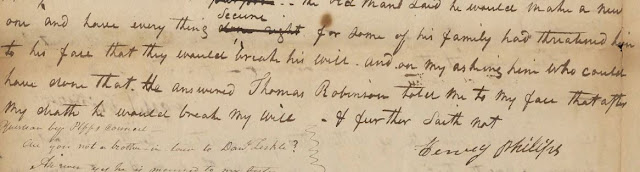 the old man said he would make a new
one and have every thing secure done right for some of his family had threatened him
to his face that they would break his will - and on my asking him who could
have done that. He answered Thomas Robinson told me to my face that after
my death he would break my will - & further saith not
Henry Philips
Question by Opps Counsel
Are you not a brother in law to Danl Leslie?